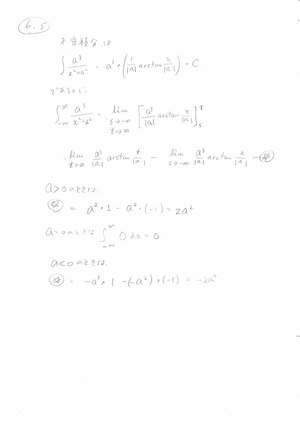 6.5
不定積分は
∫ a³/(x²+a²) = a³・(1/|a| arctan x/|a|) + C
であるので
∫_{-∞}^{∞} a³/(x²+a²) = lim_{s→-∞ t→∞} [a³/|a| arctan x/|a|]_s^T
lim_{t→∞} a³/|a| arctan t/|a| - lim_{s→-∞} a³/|a| arctan s/|a|
a>0のときは、
= a²・1 - a²・(-1) = 2a²
a=0のときは ∫_{-∞}^{∞} 0 dx = 0
a<0のときは、
= -a²・1 -(-a²)・(-1) = -2a²